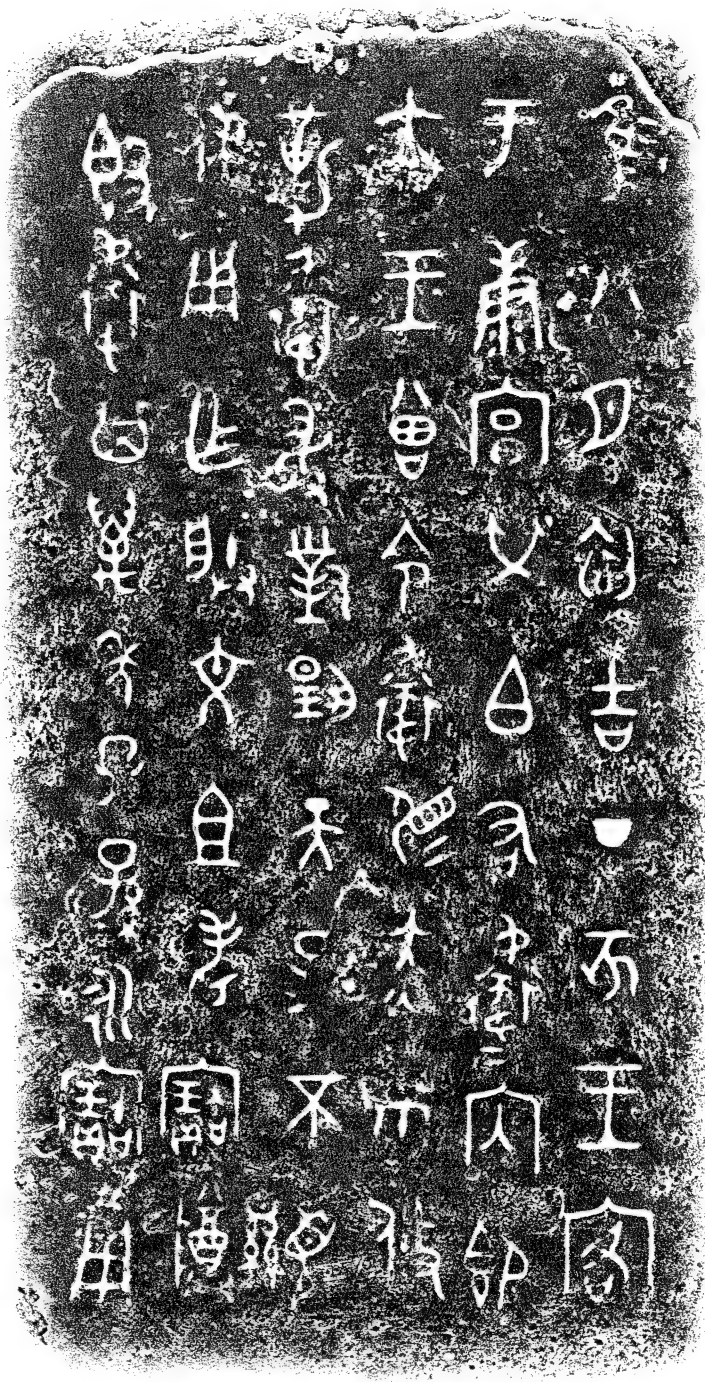 隹八月初吉丁亥王客
于康宮榮白右衛内即
立王曾令衛易赤巿攸
勒衛敢對揚天子不顯
休用乍朕文且考寶尊
簋衛其萬年子子孫孫永寶用